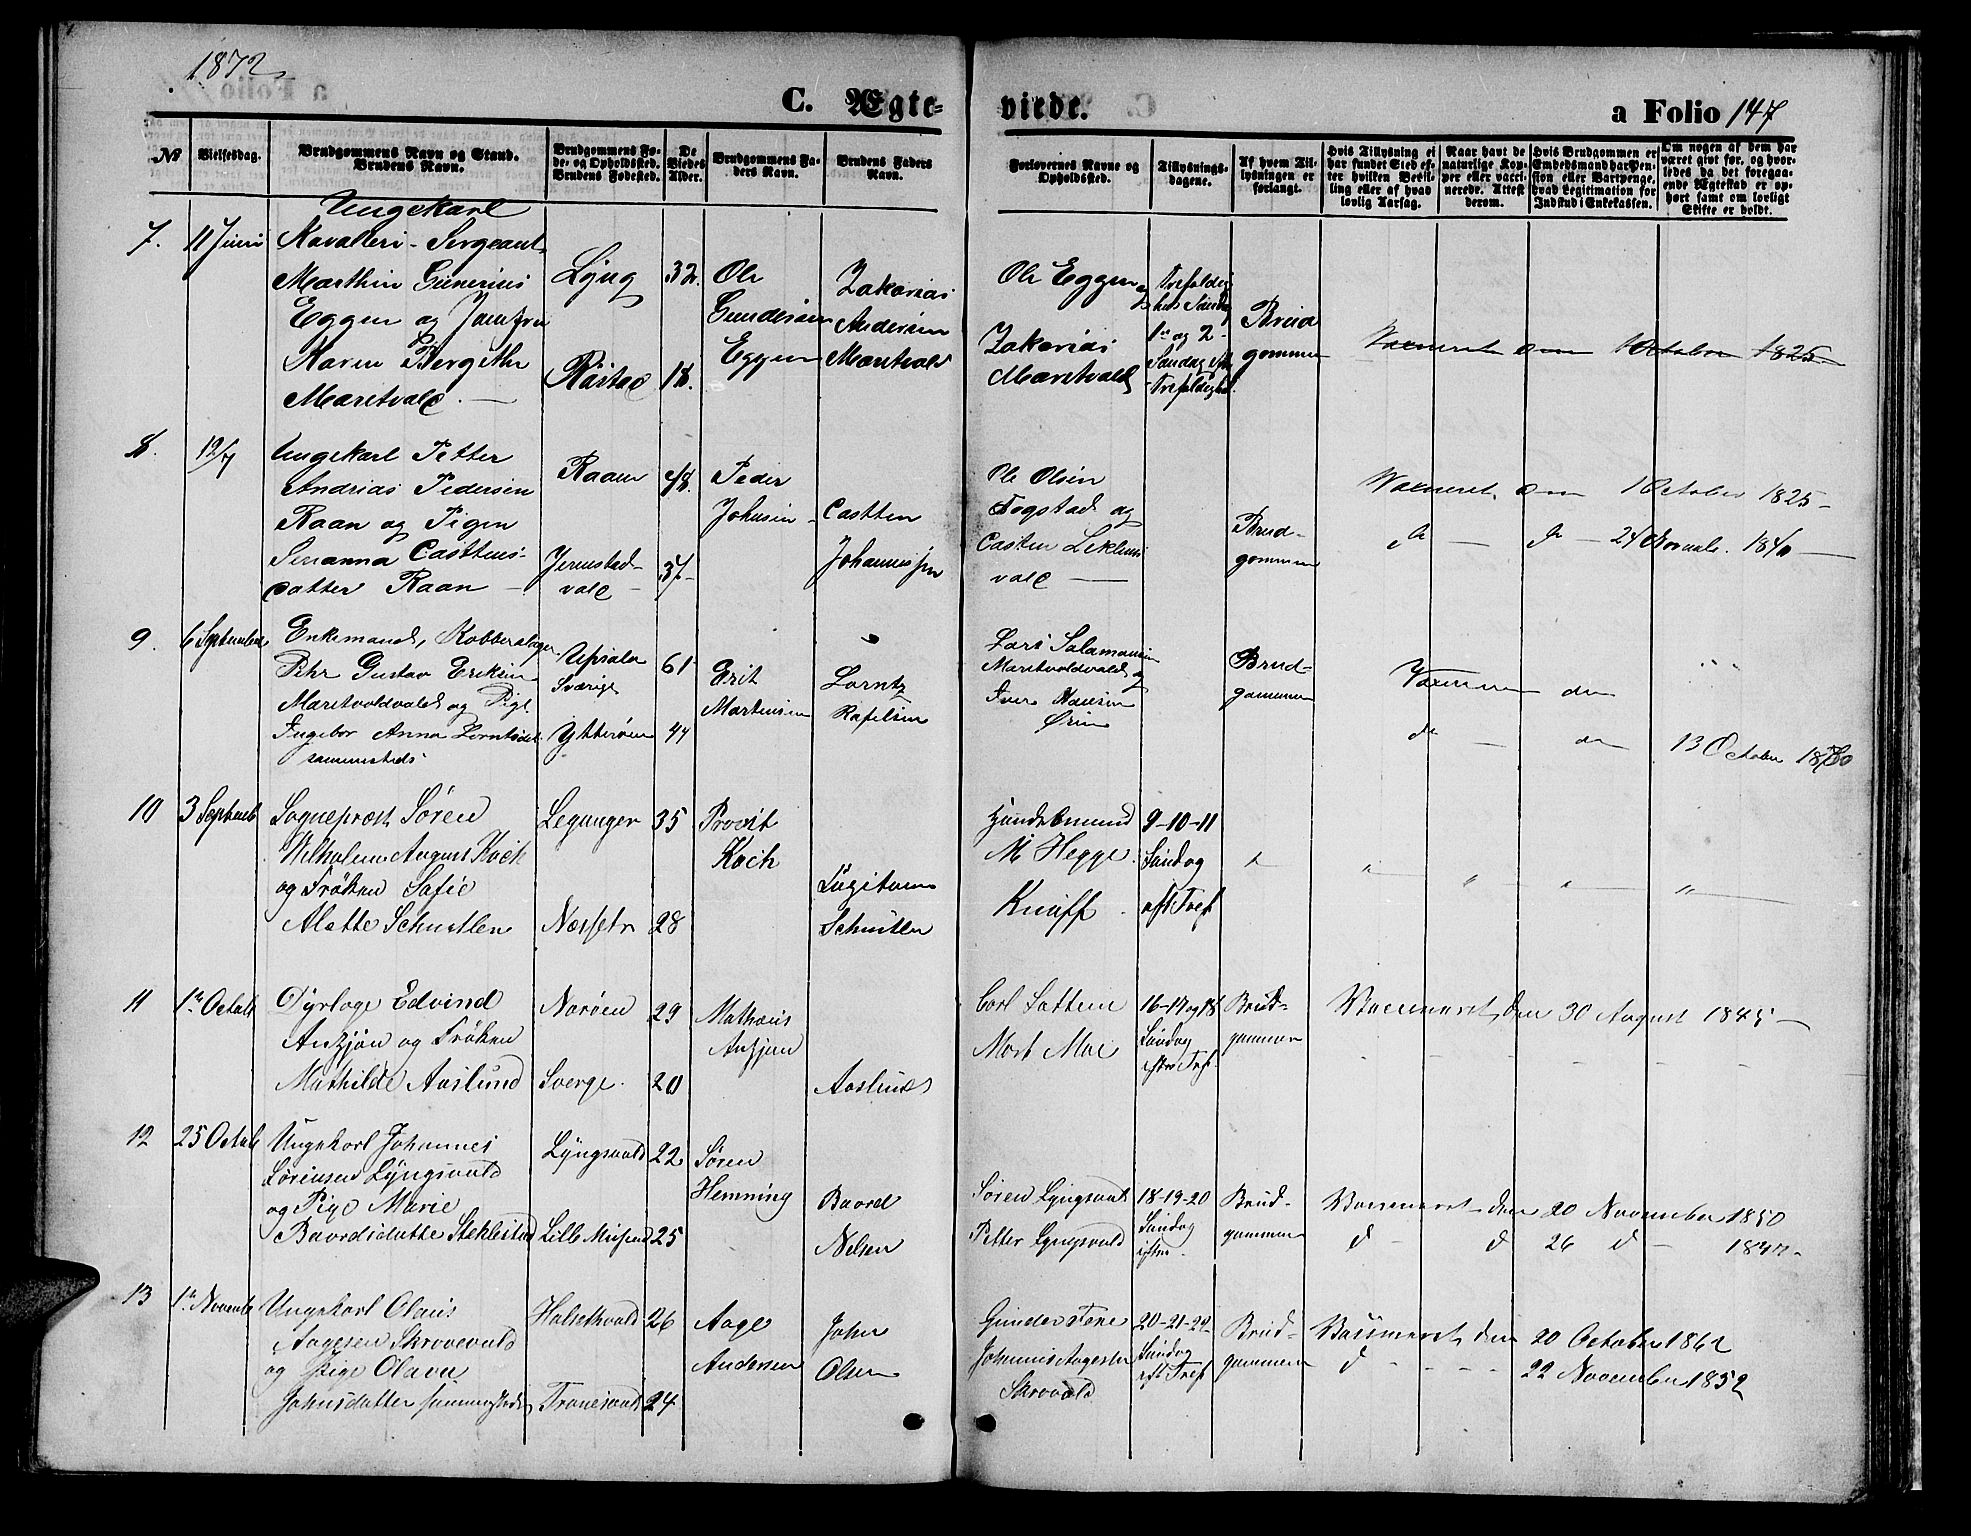 1872
C. Ægte-
viede.
a Folio 147
№
Vielsesdag.
Brudgommens Navn og Stand.
Brudens Navn.
Brudgommens Fø-
de- og Opholdssted.
Brudens Fødested.
De
Viedes
Alder.
Brudgommens Fa-
ders Navn.
Brudens Faders
Navn.
Forlovernes Navne og
Opholdssted.
Tillysnings-
dagene.
Af hvem Til-
lysningen er
forlangt.
Hvis Tillysning ei
har fundet Sted ef-
ter hvilken Bevil-
ling eller af hvad
lovlig Aarsag.
Naar havt de
naturlige Kop-
per eller vacci-
nerede. Attest
derom.
Hvis Brudgommen er
Embedsmand har Pen-
sion eller Vartpenge,
hvad Legitimation for
Indskud i Enkekassen.
Om nogen af dem har
været givt før, og hvor-
ledes da det foregaa-
ende Ægteskab er op-
hørt samt om lovligt
Skifte er holdt.
7.
11 Juni
Ungekarl
Kavalleri-Sergeant
Marthin Gunerius
Eggen og Jomfru
Karen Bergithe
Maritvald.
Lyng
Råstad
32.
18.
Ole
Gundersen
Eggen
Zakarias
Andersen
Maritvald
Ole Eggen og
Zakarias
Maritvald
Trefoldig
hed Søndag
1ste og 2-
Søndag eft
Trefoldighed.
Brud
gommen
Vaccineret den 1 October 1825
8.
12/7
Ungekarl Petter
Andrias Pedersen
Raan og Pigen
Susanna Casttens-
datter Raan
Raaen
Jermstad-
vald
48.
37
Peder
Johnsen
Castten
Johannessen
Ole Olsen
Fogstad og
Casten Leklems
vald
Brud-
gommen
Vaccineret den 1 October 1825
d - d - 24 Novemb. 1840
9.
6 September
Enkemand, Kobberslager
Pehr Gustav Eriksen
Maritvoldvald og Pige
Ingebor Anna Lorntsdat
sammesteds
Upsala
Sverige
Ytterøen
61
44
Erik
Martinsen
Lorntz
Rafelsen
Lars Salamonsen
Maritvoldvald og
Iver Hansen
Ørin
Brud-
gommen
Vaccineret den
do - den 13 October 1830
10
3 Septemb
Sogneprest Søren
Wilhelm August Koch
og Frøken Safie
Alette Schustlen
Leganger
Næsset
35
28
Provst
Koch
Schustlen
M Hegge
Knuff
9-10-11
Søndag
eft Tref
11
1ste Octob
Dyrlæge Edvind
Anzjøn og Frøken
Mathilde Aaslund
Norøen
Sverge
29
20
Mathæus
Anzjøn
Aaslund
Carl Sattem
Mort Moe
16-17 og 18
Søndag
efter Tref
Brud-
gommen
Vaccineret den 30 August 1845
12
25 Octob
Ungekarl Johannes
Sørensen Lyngsvald
og Pige Marie
Baardsdatte Steklestad
Lyngsvald
Lille Minsaas
22
25
Søren
Hemning
Baard
Nelsen
Søren Lyngsvald
Petter Lyngsvald
18-19-20
Søndag
efter
Brud-
gommen
Vaccineret den 20 November 1850
d - d 26 d - 1847
13
1ste Novemb
Ungekarl Olaus
Aagesen Skrovevald
og Pige Olava
Johnsdatter sammesteds
Halsethvald
Tronesvald
26
24
Aage
Andersen
John
Olsen
Gunder Fane
Johannis Aagesen
Skrovald
20-21-22
Søndag
eft Tref
Brud-
gommen
Vaccineret den 20 October 1862
d - 22 November 1852